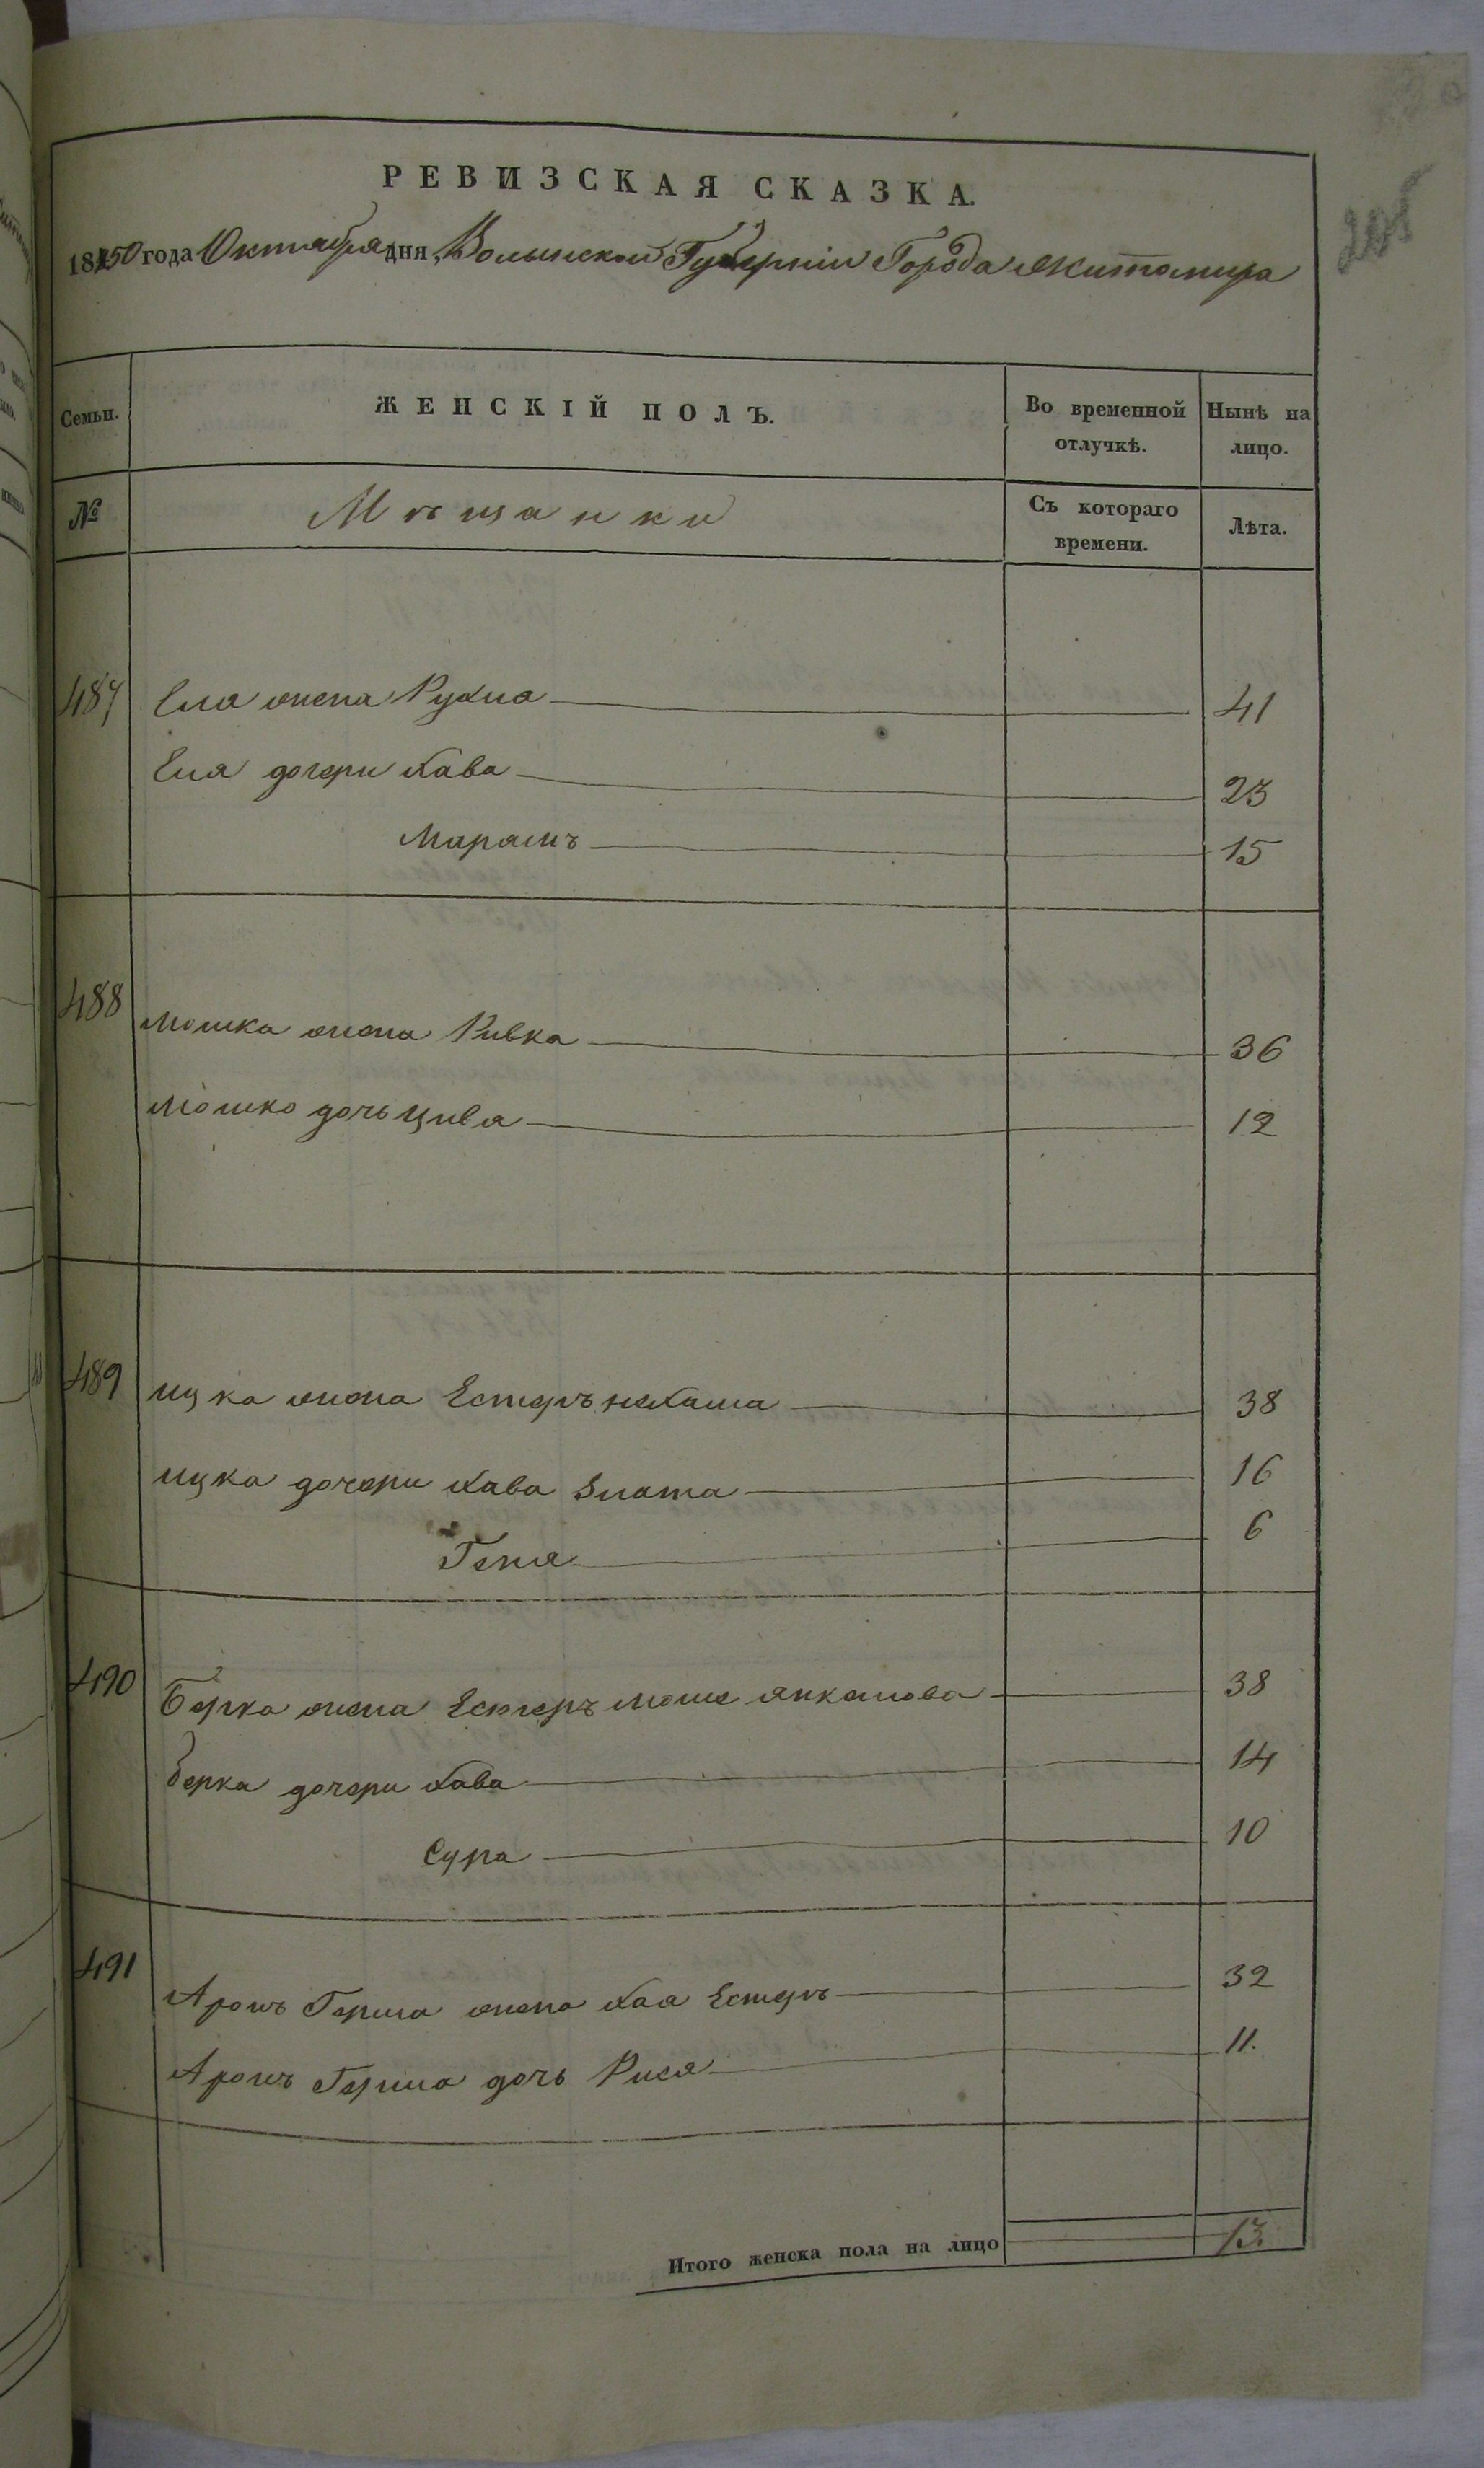 РЕВИЗСКАЯ СКАЗКА.
1850 года Октября дня, Волынской Губерніи Города Житомира
Семьи.
ЖЕНСКІЙ ПОЛЪ.
Во временной отлучкѣ.
Нынѣ на лицо.
№
Мѣщанки
Съ котораго времени.
Лѣта.
487 Еля жена Рухля 41
Еля дочери Хава 23
Мирамъ 15
488 Мошка жена Ривка 36
Мошко дочь Цивя 12
489 Ицка жена Естеръ нехама 38
Ицка дочери Хава Злата 16
Геня 6
490 Берка жена Естеръ Моше Янкелова 38
Берка дочери Хава 14
Сура 10
491 Аронъ Герша жена Хая Естеръ 32
Аронъ Герша дочь Рися 11.
Итого женска пола на лицо 13.